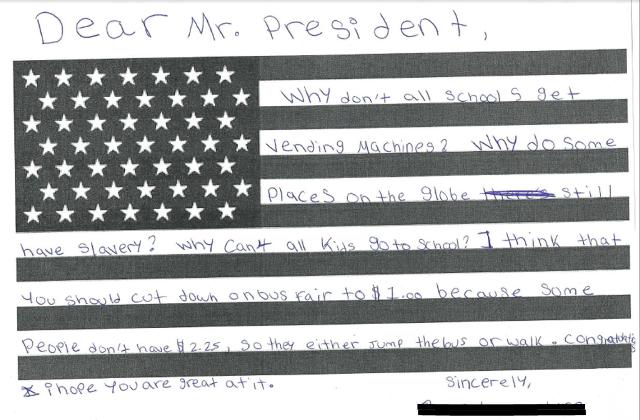 Dear Mr. President,
Why don't all schools get
vending machines? Why do some
places on the globe still
have slavery? Why can't all kids go to school? I think that
you should cut down on bus fair to $1.00 because some
people don't have $2.25, so they either jump the bus or walk. Congratultis
* i hope you are great at it.
Sincerely,